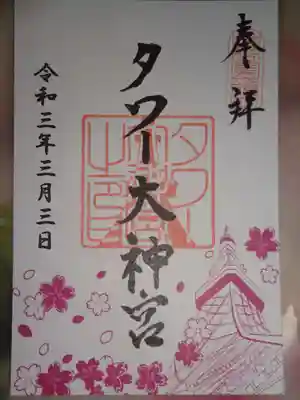 奉拝
タワー大神宮
令和三年三月三日